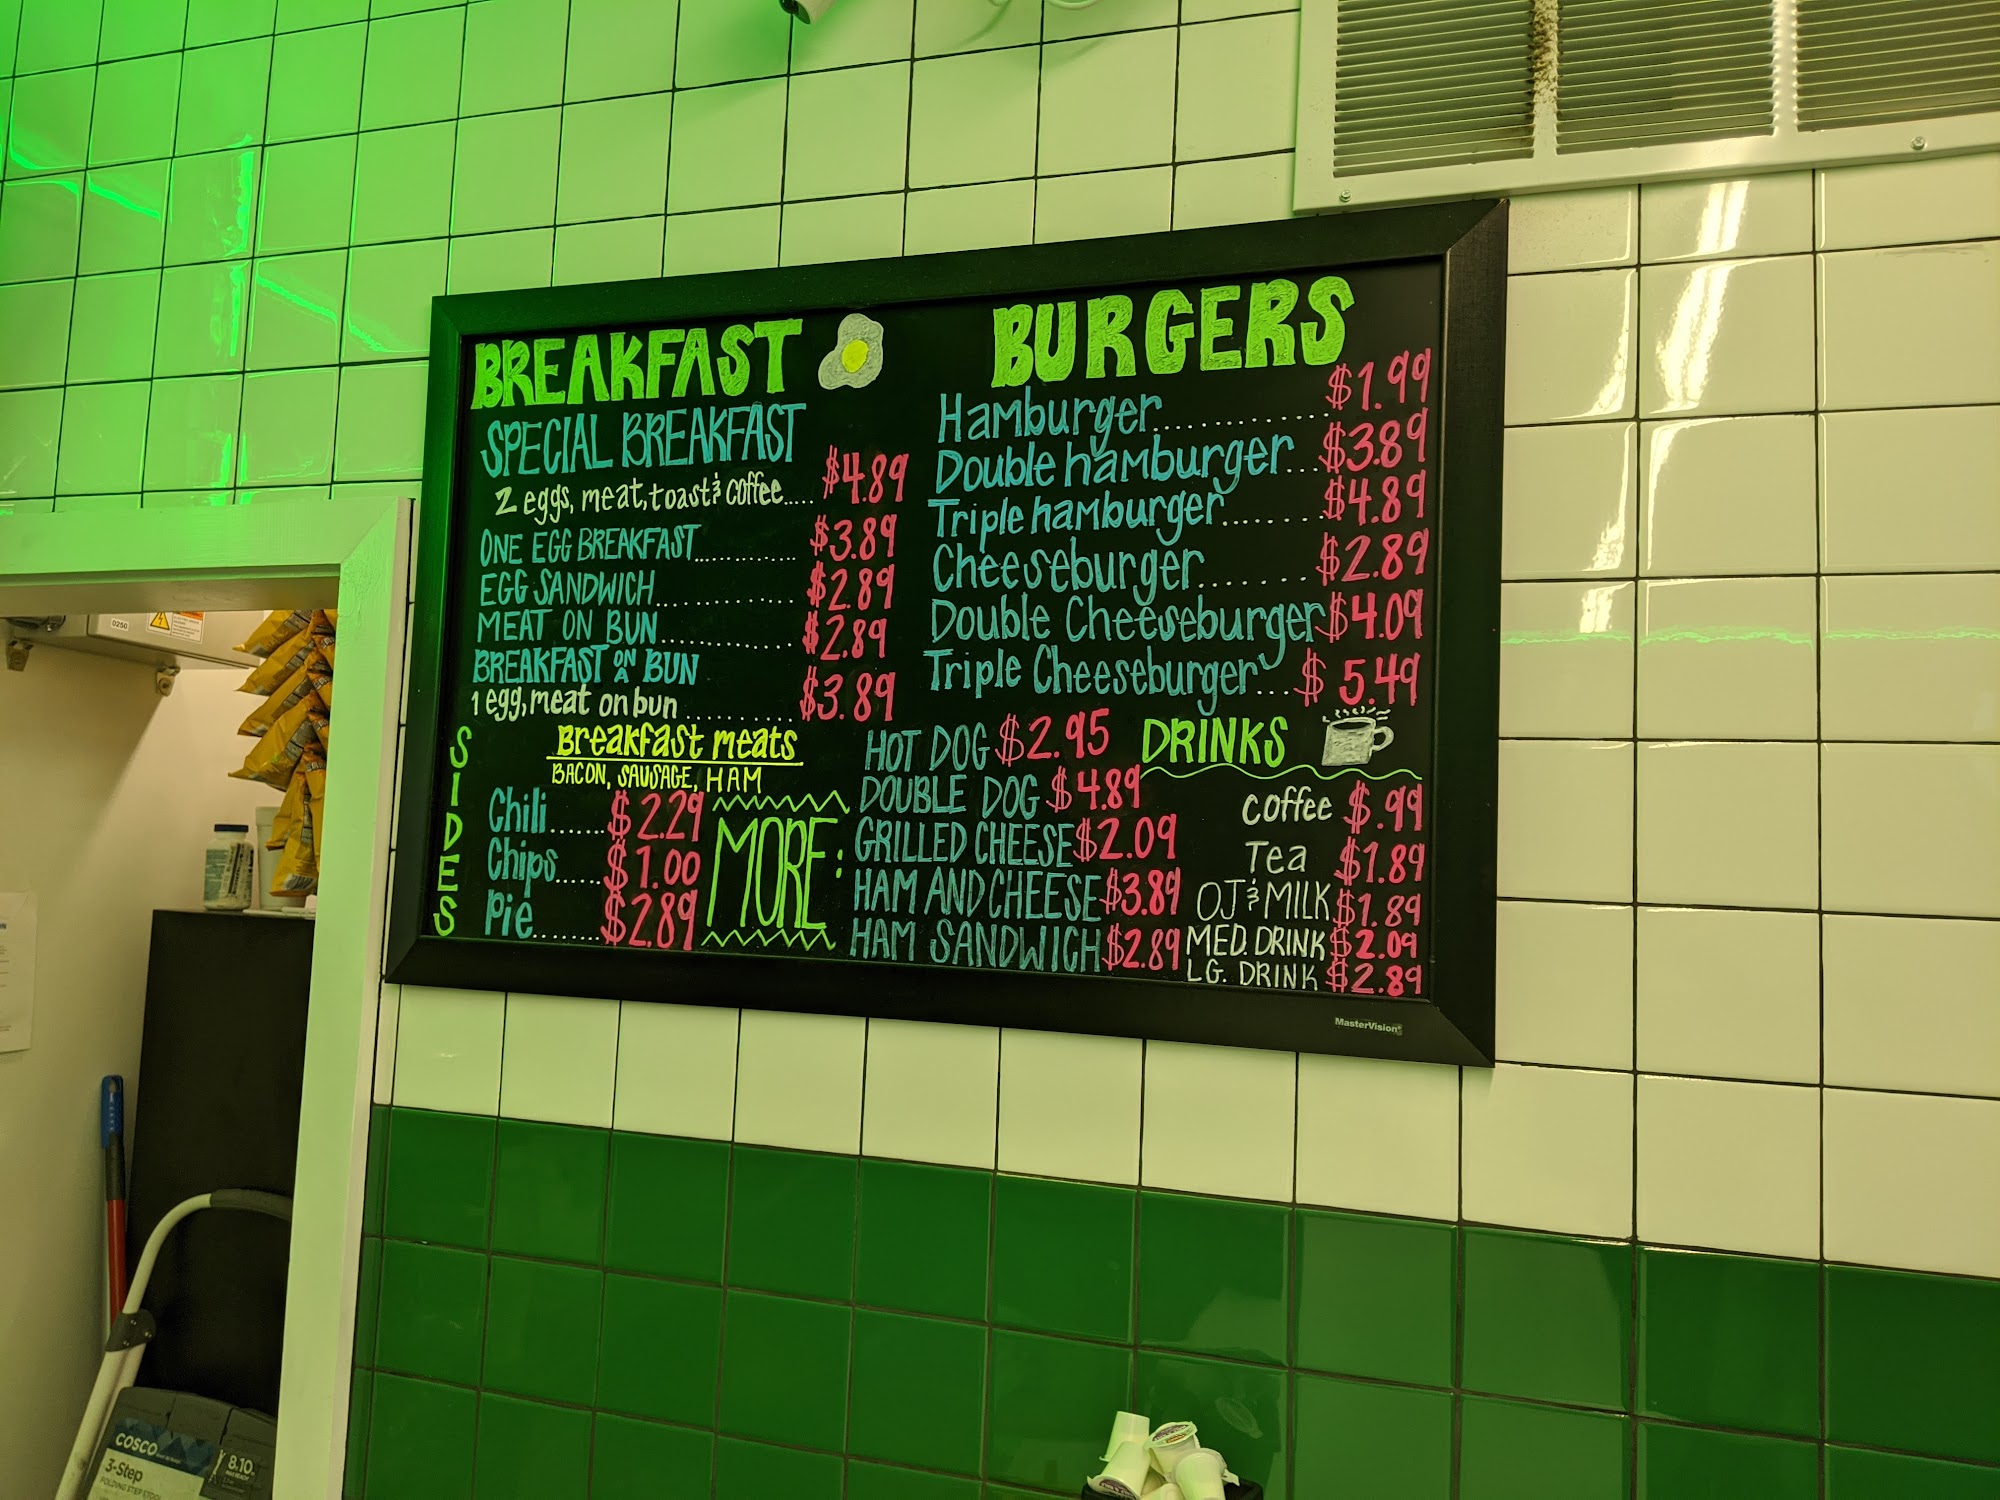 BREAKFAST
SPECIAL BREAKFAST
2 eggs, meat, toast & coffee..... $4.89
ONE EGG BREAKFAST............ $3.89
EGG SANDWICH.............. $2.89
MEAT ON BUN.............. $2.89
BREAKFAST ON A BUN
1 egg, meat on bun ........... $3.89
Breakfast meats
BACON, SAUSAGE, HAM
SIDES
Chili....... $2.29
Chips...... $1.00
Pie......... $2.89
BURGERS
Hamburger............. $1.99
Double hamburger... $3.89
Triple hamburger........ $4.89
Cheeseburger....... $2.89
Double Cheeseburger $4.09
Triple Cheeseburger... $5.49
MORE:
HOT DOG $2.95
DOUBLE DOG $4.89
GRILLED CHEESE $2.09
HAM AND CHEESE $3.89
HAM SANDWICH $2.89
DRINKS
coffee $.99
Tea $1.89
OJ & MILK $1.89
MED. DRINK $2.09
LG. DRINK $2.89
MasterVision
0250
COSCO
3-Step
FOLDING STEP
8.10